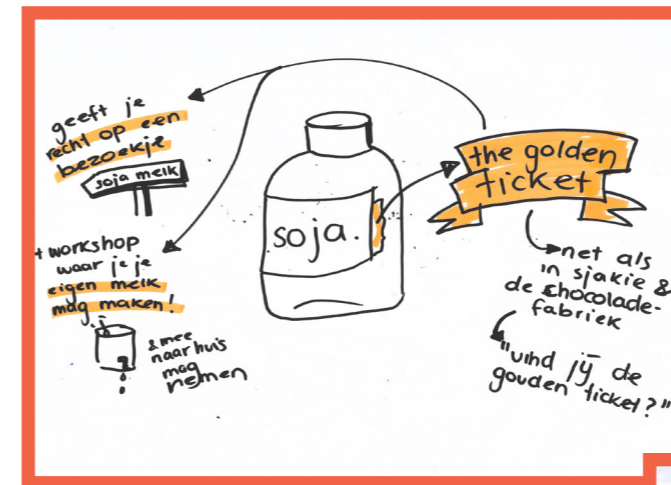 geeft je
recht op een
bezoekje
soja melk
+ workshop
waar je je
eigen melk
mag maken!
& mee
naar huis
mag
nemen
soja.
the golden
ticket
net als
in sjakie &
de chocolade-
fabriek
"vind jij de
gouden ticket?"